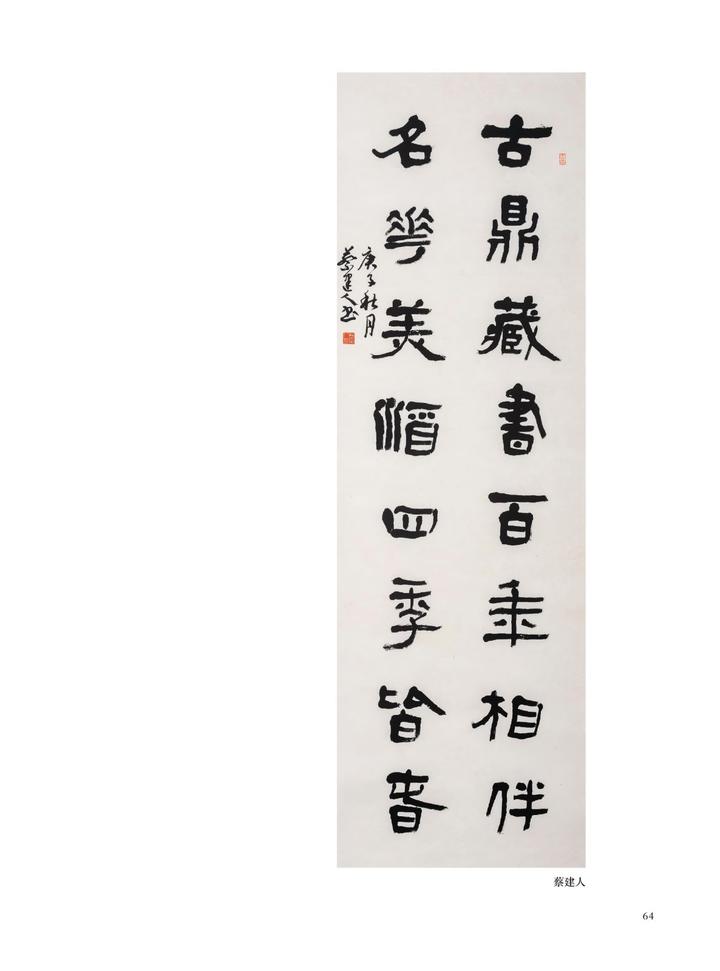 古鼎藏書百年相伴
名花美酒四季皆春
庚子秋月
蔡建人书
蔡建人
64